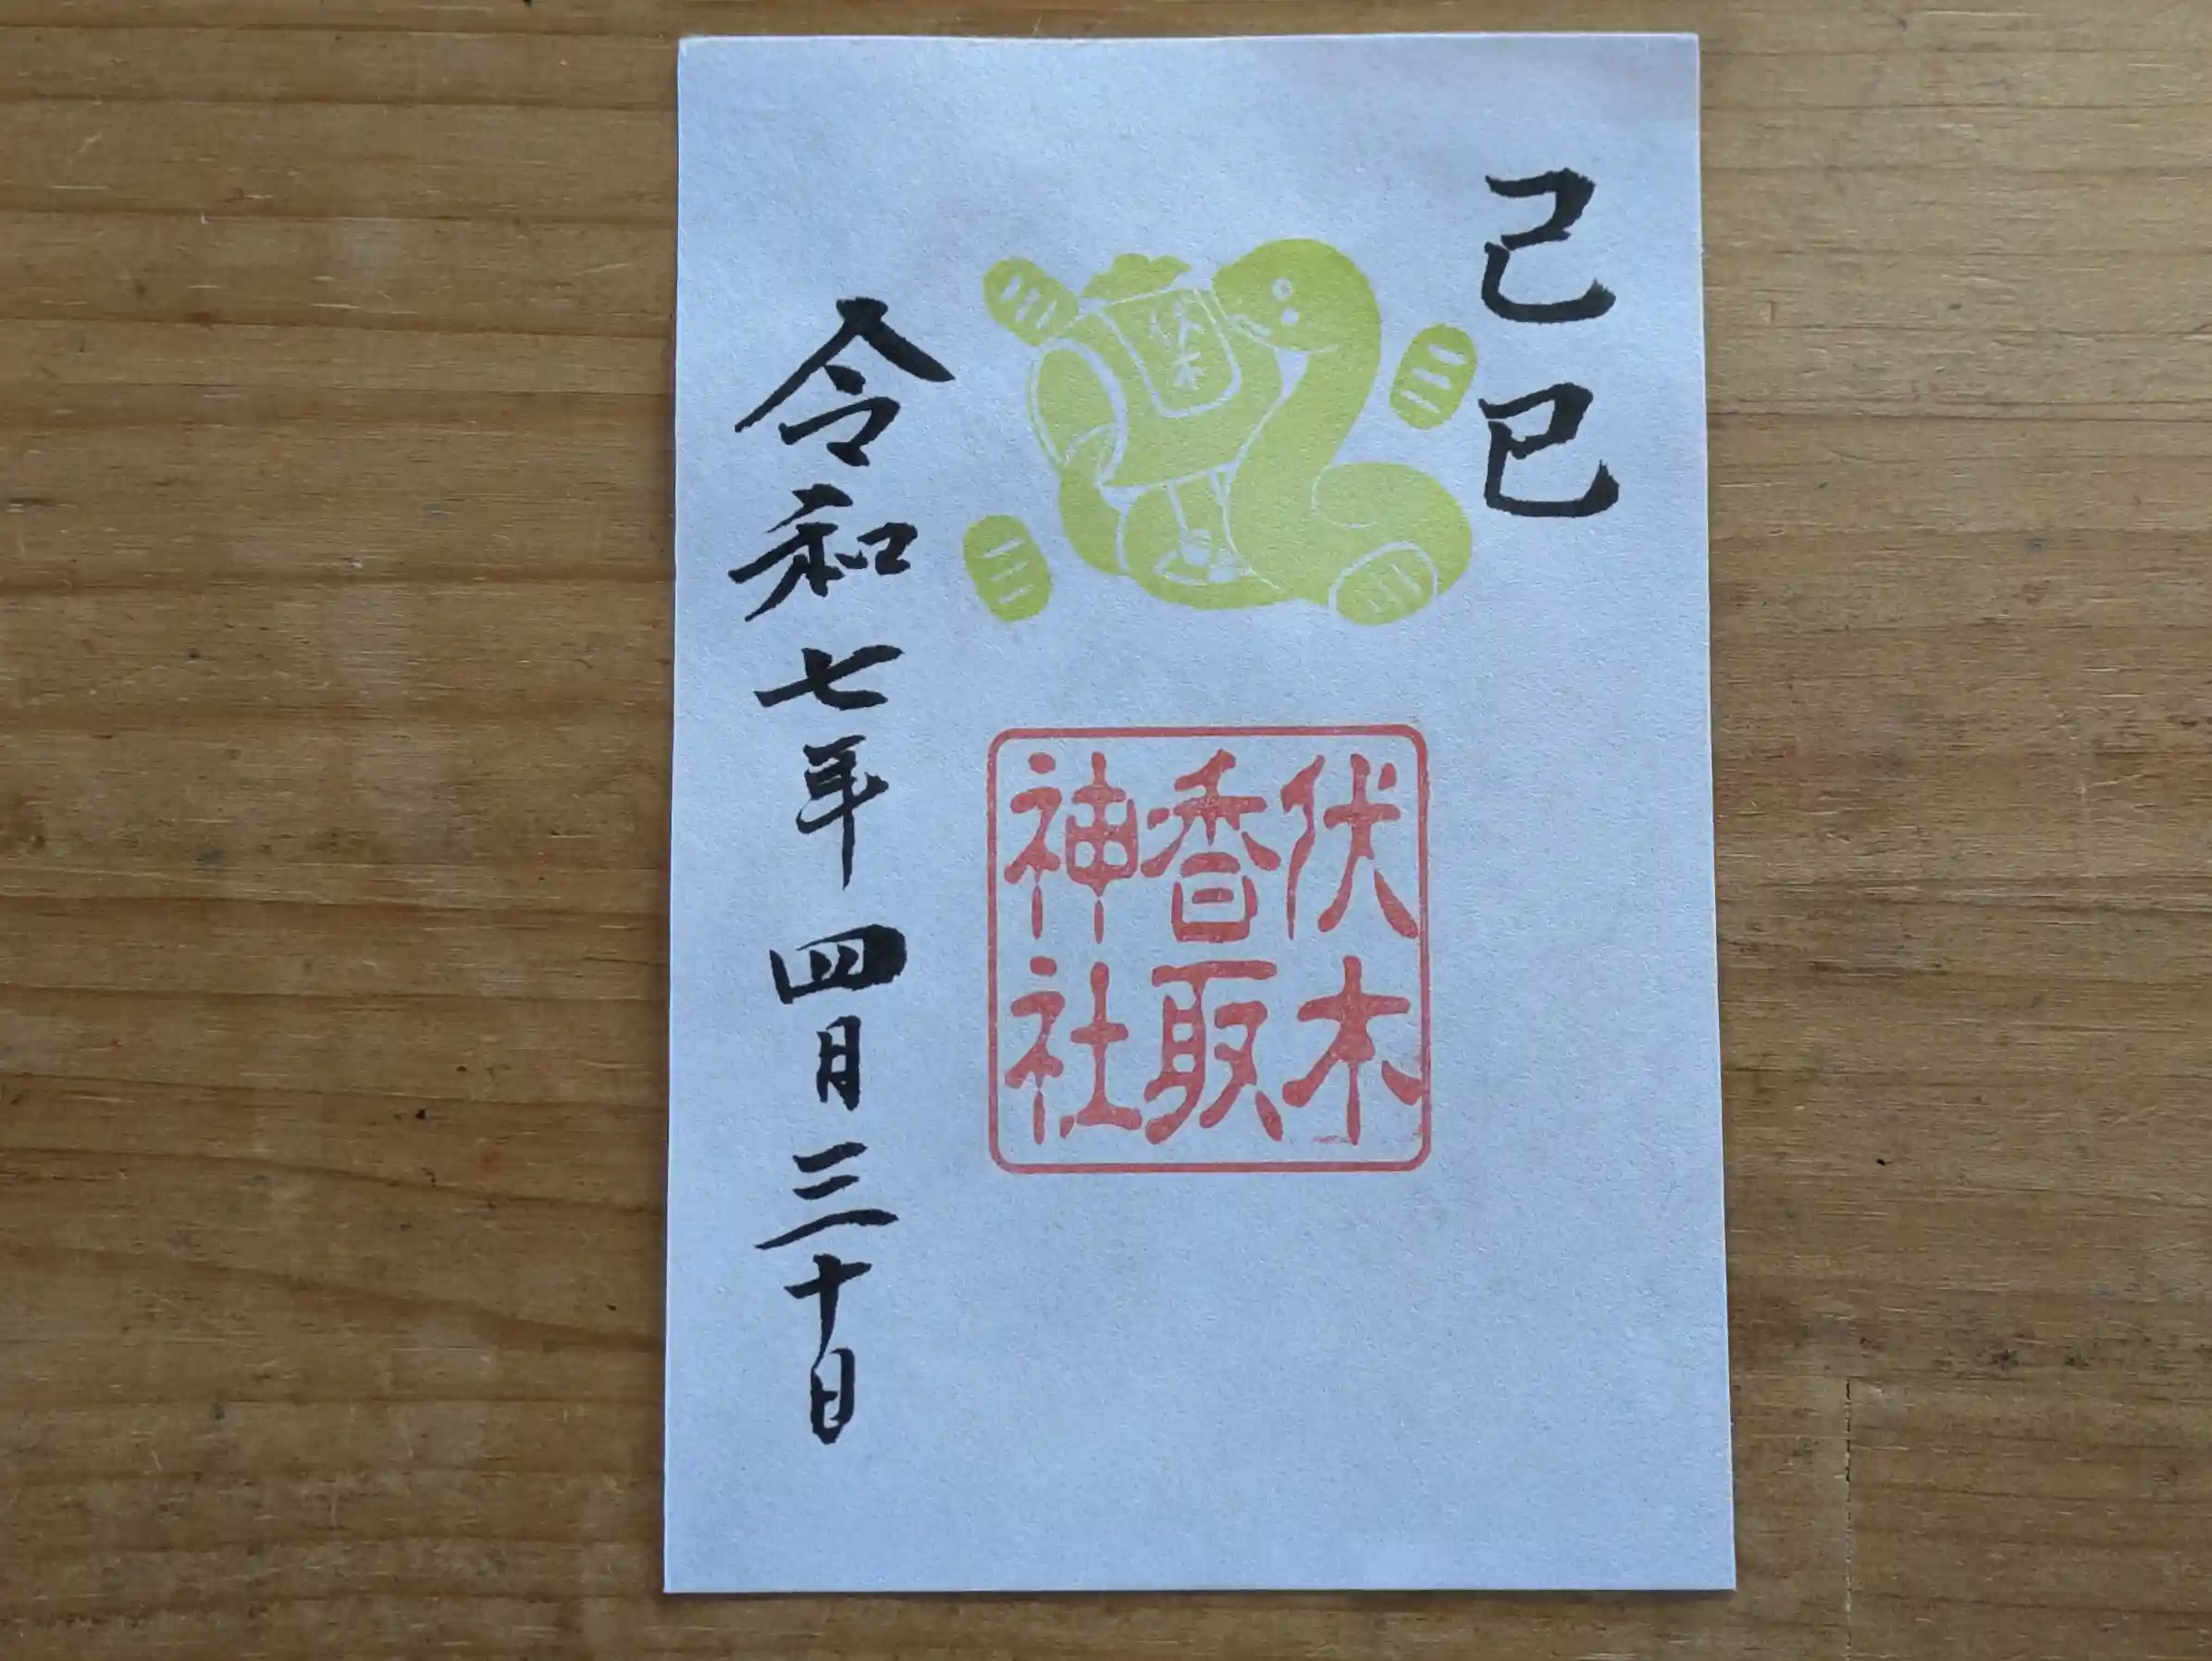 己巳
伏木
伏木
香取
神社
令和七年四月三十日